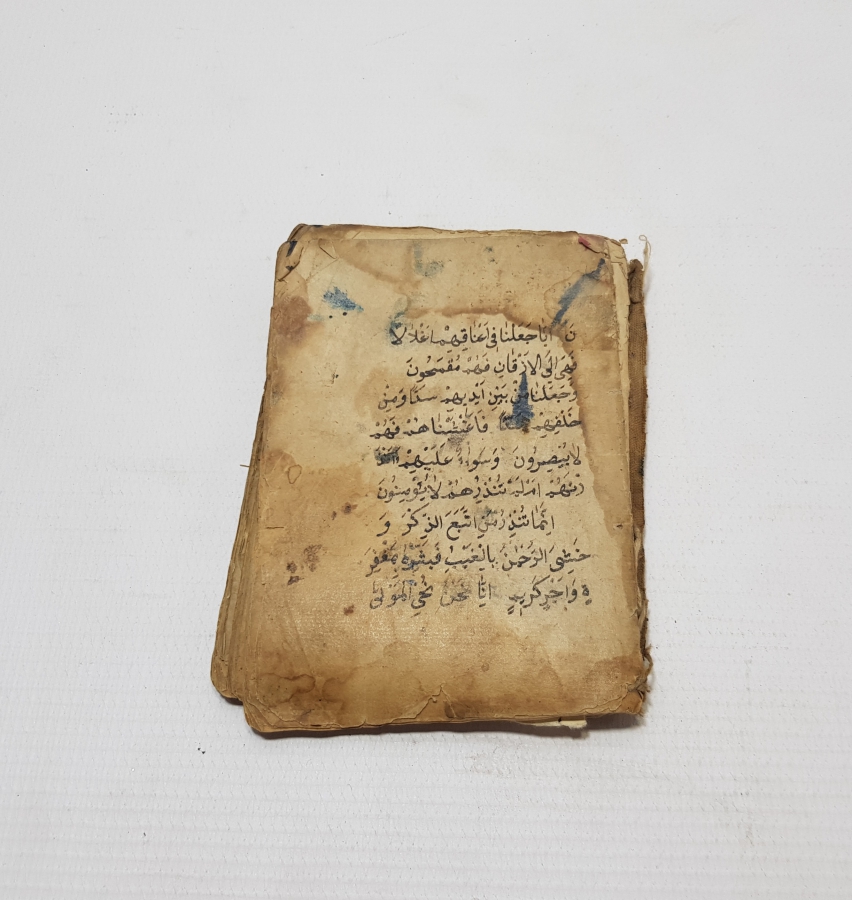 نَ اِنَّا جَعَلْنَا فٖى اَعْنَاقِهِمْ اَغْلَالًا
فَهِىَ اِلَى الْاَذْقَانِ فَهُمْ مُقْمَحُونَ
وَجَعَلْنَا مِنْ بَيْنِ اَيْدٖيهِمْ سَدًّا وَمِنْ
خَلْفِهِمْ سَدًّا فَاَغْشَيْنَاهُمْ فَهُمْ
لَا يُبْصِرُونَ وَسَوَاءٌ عَلَيْهِمْ ءَاَنْذَ
رْتَهُمْ اَمْ لَمْ تُنْذِرْهُمْ لَا يُؤْمِنُونَ
اِنَّمَا تُنْذِرُ مَنِ اتَّبَعَ الذِّكْرَ وَ
خَشِىَ الرَّحْمٰنَ بِالْغَيْبِ فَبَشِّرْهُ بِمَغْفِرَ
ةٍ وَاَجْرٍ كَرٖيمٍ اِنَّا نَحْنُ نُحْىِ الْمَوْتٰى